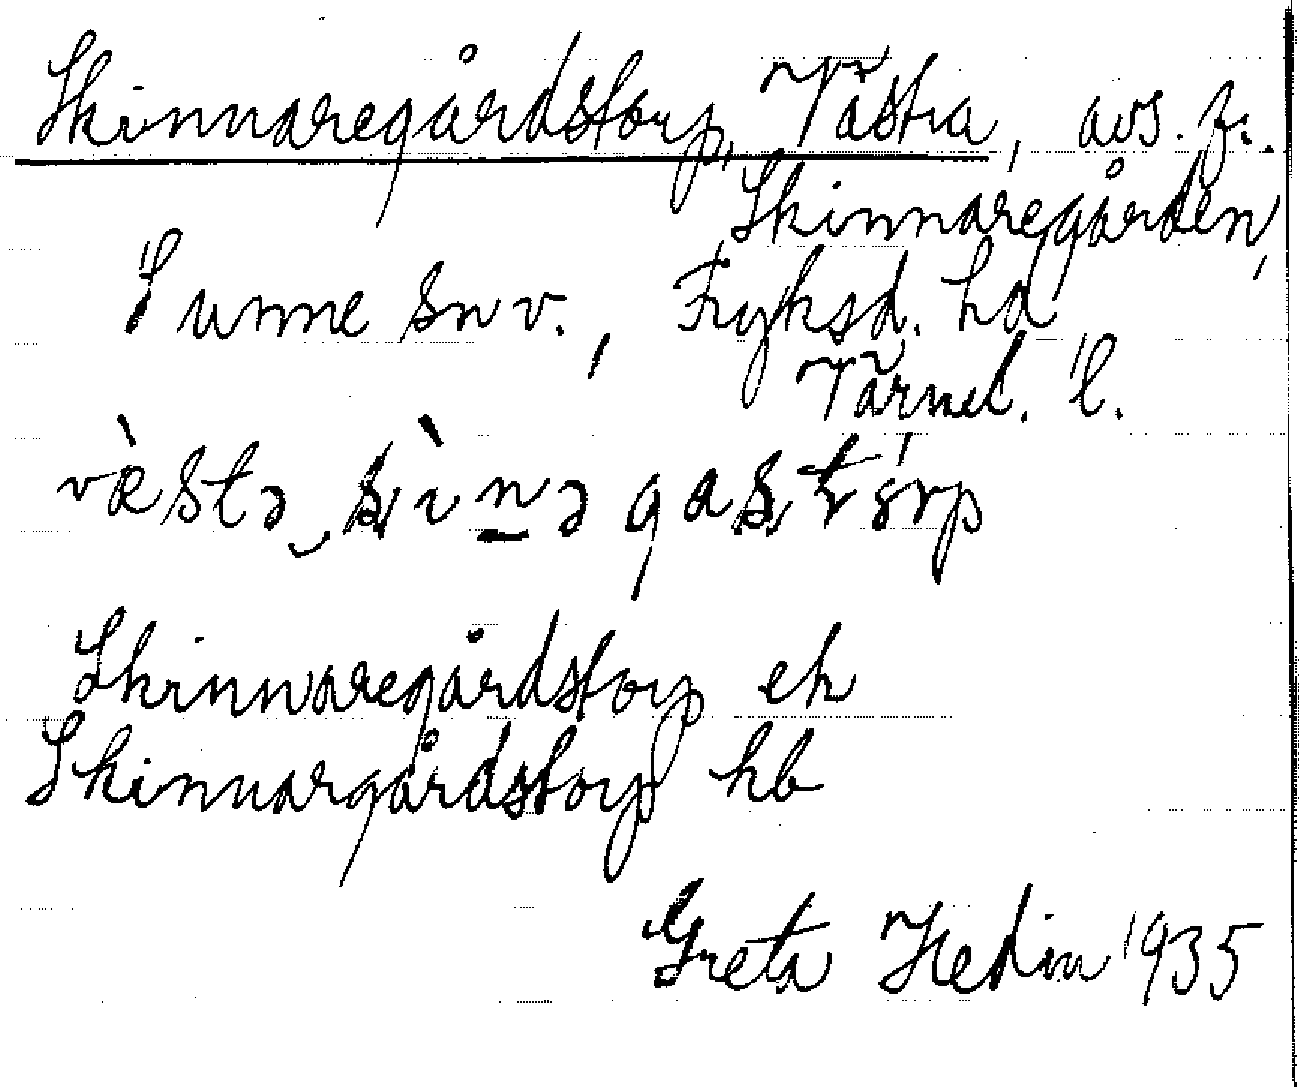 Skinnaregårdstorp, Västra, avs. fr.
Skinnaregården,
Sunne sn v., Fryksd. hd
Värml. l.
Skinnaregårdstorp ek
Skinnargårdstorp hb
Greta Hedin 1935